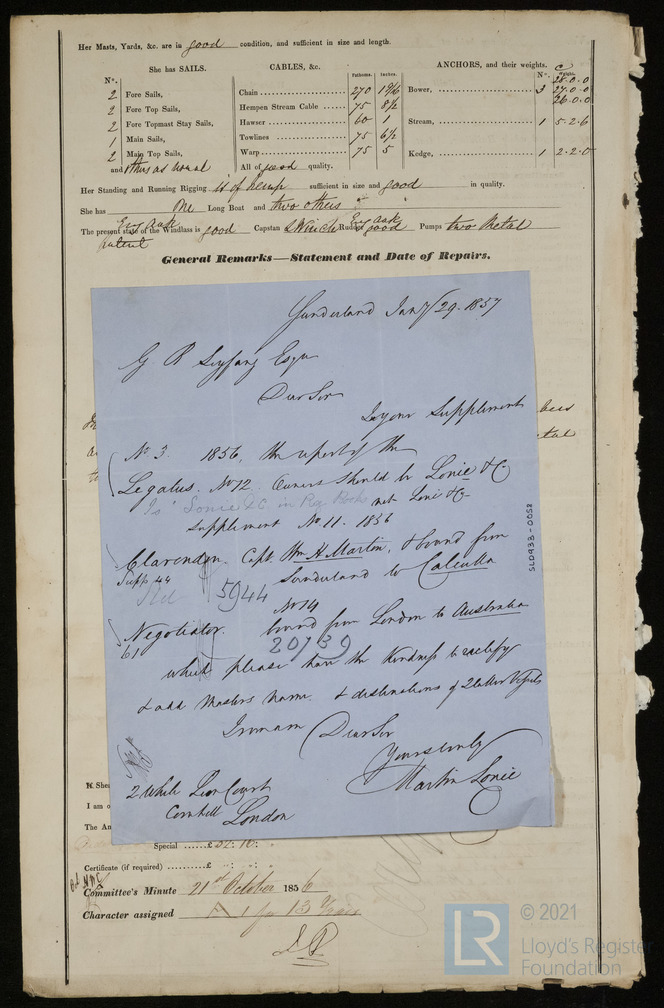 Her Masts, Yards, &c. are in good condition, and sufficient in size and length.
She has SAILS.
N°.
2 Fore Sails,
2 Fore Top Sails,
2 Fore Topmast Stay Sails,
1 Main Sails,
2 Main Top Sails,
and others as usual
CABLES, &c.
Fathoms. Inches.
Chain 270 1 9/16
Hempen Stream Cable 75 8 1/2
Hawser 60 1
Towlines 75 6 1/2
Warp 75 5
All of good quality.
ANCHORS, and their weights.
N°. Weight.
Bower, 3 28.0.0
27.0.0
26.0.0
Stream, 1 5.2.6
Kedge, 1 2.2.0
Her Standing and Running Rigging is of hemp sufficient in size and good in quality.
She has one Long Boat and two others
The present state of the Windlass is good Capstan & Winch Rudder is good Pumps two Metal
patent
General Remarks—Statement and Date of Repairs.
Sunderland Jany 29. 1857
G B Seyfang Esqr
Dear Sir
In your Supplement
No 3. 1856, the report of the
Legatus. No 12. Owners should be Lonie & Co
Is Lonie & C in Reg Book not Loni & Co
Supplement No 11. 1856
Clarendon. Capt. Wm H. Martin, & bound from
Supp 44 Sunderland to Calcutta
5944
No 14
Negotiator. bound from London to Australia
61 20739
which please have the kindness to rectify
& add Masters Name & destinations of 2 latter Vessels
I remain Dear Sir
Yours truly
Martin Lonie
2 White Lion Court
Cornhill London
SLD933-0052
I am o
Special £ 52: 10:
Certificate (if required) £
Committee's Minute 21st October 1856
Character assigned A 1 for 13 Years
LR
© 2021
Lloyd's Register
Foundation